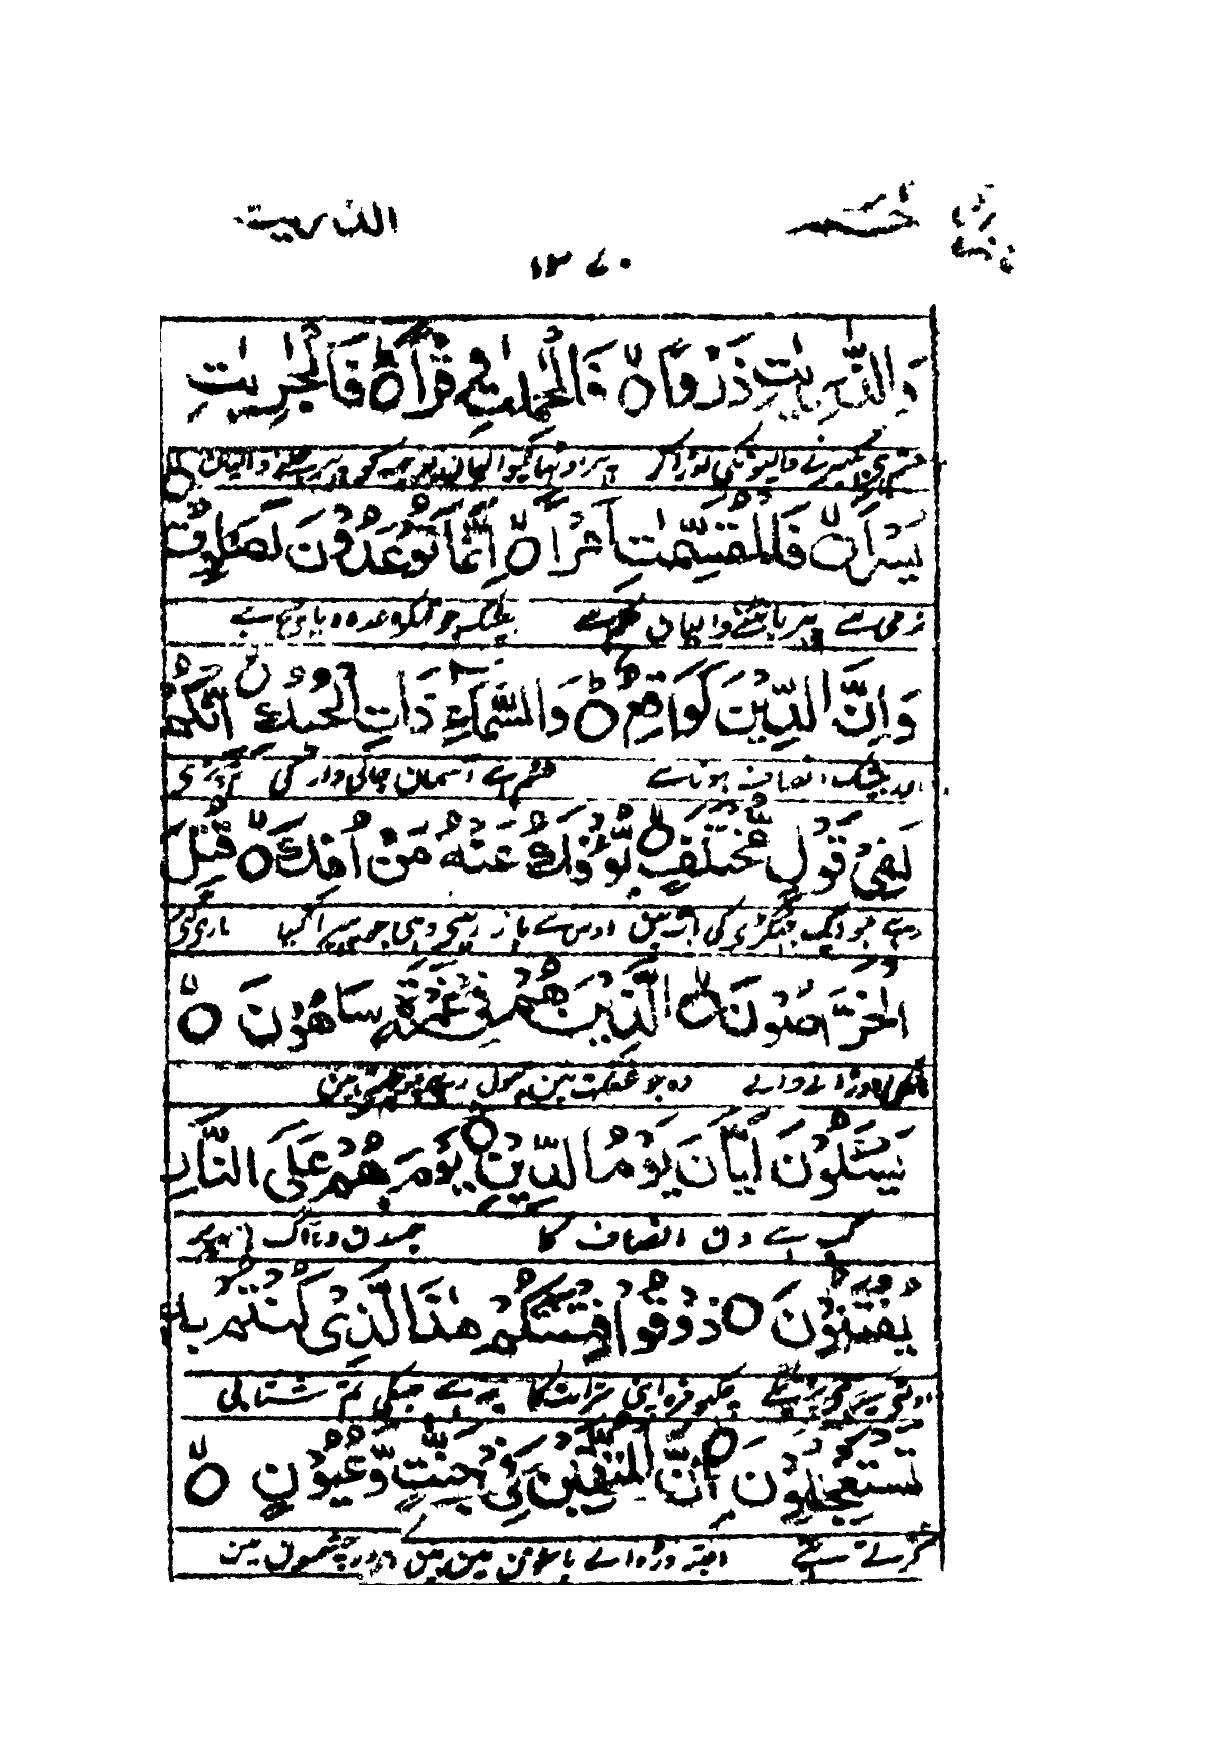 حٰم الذّٰریٰت
۱۳۷۰
وَالذّٰرِیٰتِ ذَرْوًا ۙ فَالْحٰمِلٰتِ وِقْرًا ۙ فَالْجٰرِیٰتِ
یُسْرًا ۙ فَالْمُقَسِّمٰتِ اَمْرًا ۙ اِنَّمَا تُوْعَدُوْنَ لَصَادِقٌ
نرمی سے پھر بانٹنے والیاں حکم سے بیشک جو تمکو وعدہ دیا سچ ہے
وَاِنَّ الدِّیْنَ لَوَاقِعٌ ؕ وَالسَّمَآءِ ذَاتِ الْحُبُكِ ۙ اِنَّكُمْ
اور بیشک انصاف ہونا ہے قسم ہے آسمان جالی دار کی تم پڑی
لَفِیْ قَوْلٍ مُّخْتَلِفٍ ۙ یُّؤْفَكُ عَنْهُ مَنْ اُفِكَ ؕ قُتِلَ
رہے ہو ایک جھگڑی کی بات میں اوس سے باز رہی وہی جو پھیرا گیا ماری گئی
الْخَرّٰصُوْنَ ۙ الَّذِیْنَ هُمْ فِیْ غَمْرَةٍ سَاهُوْنَ ۙ
اٹکل دوڑانے والے وہ جو غفلت میں بھول رہے ہیں
یَسْـَٔلُوْنَ اَیَّانَ یَوْمُ الدِّیْنِ ؕ یَوْمَ هُمْ عَلَی النَّارِ
کب ہے دن انصاف کا جسدن وہ آگ پر
یُفْتَنُوْنَ ۝ ذُوْقُوْا فِتْنَتَكُمْ هٰذَا الَّذِیْ كُنْتُمْ بِهٖ
چکھو مزہ اپنی شرارت کا یہ ہے جسکی تم شتابی
تَسْتَعْجِلُوْنَ ۝ اِنَّ الْمُتَّقِیْنَ فِیْ جَنّٰتٍ وَّعُیُوْنٍ ۙ
کرتے تھے البتہ ڈر والے باغوں میں ہیں اور چشموں میں